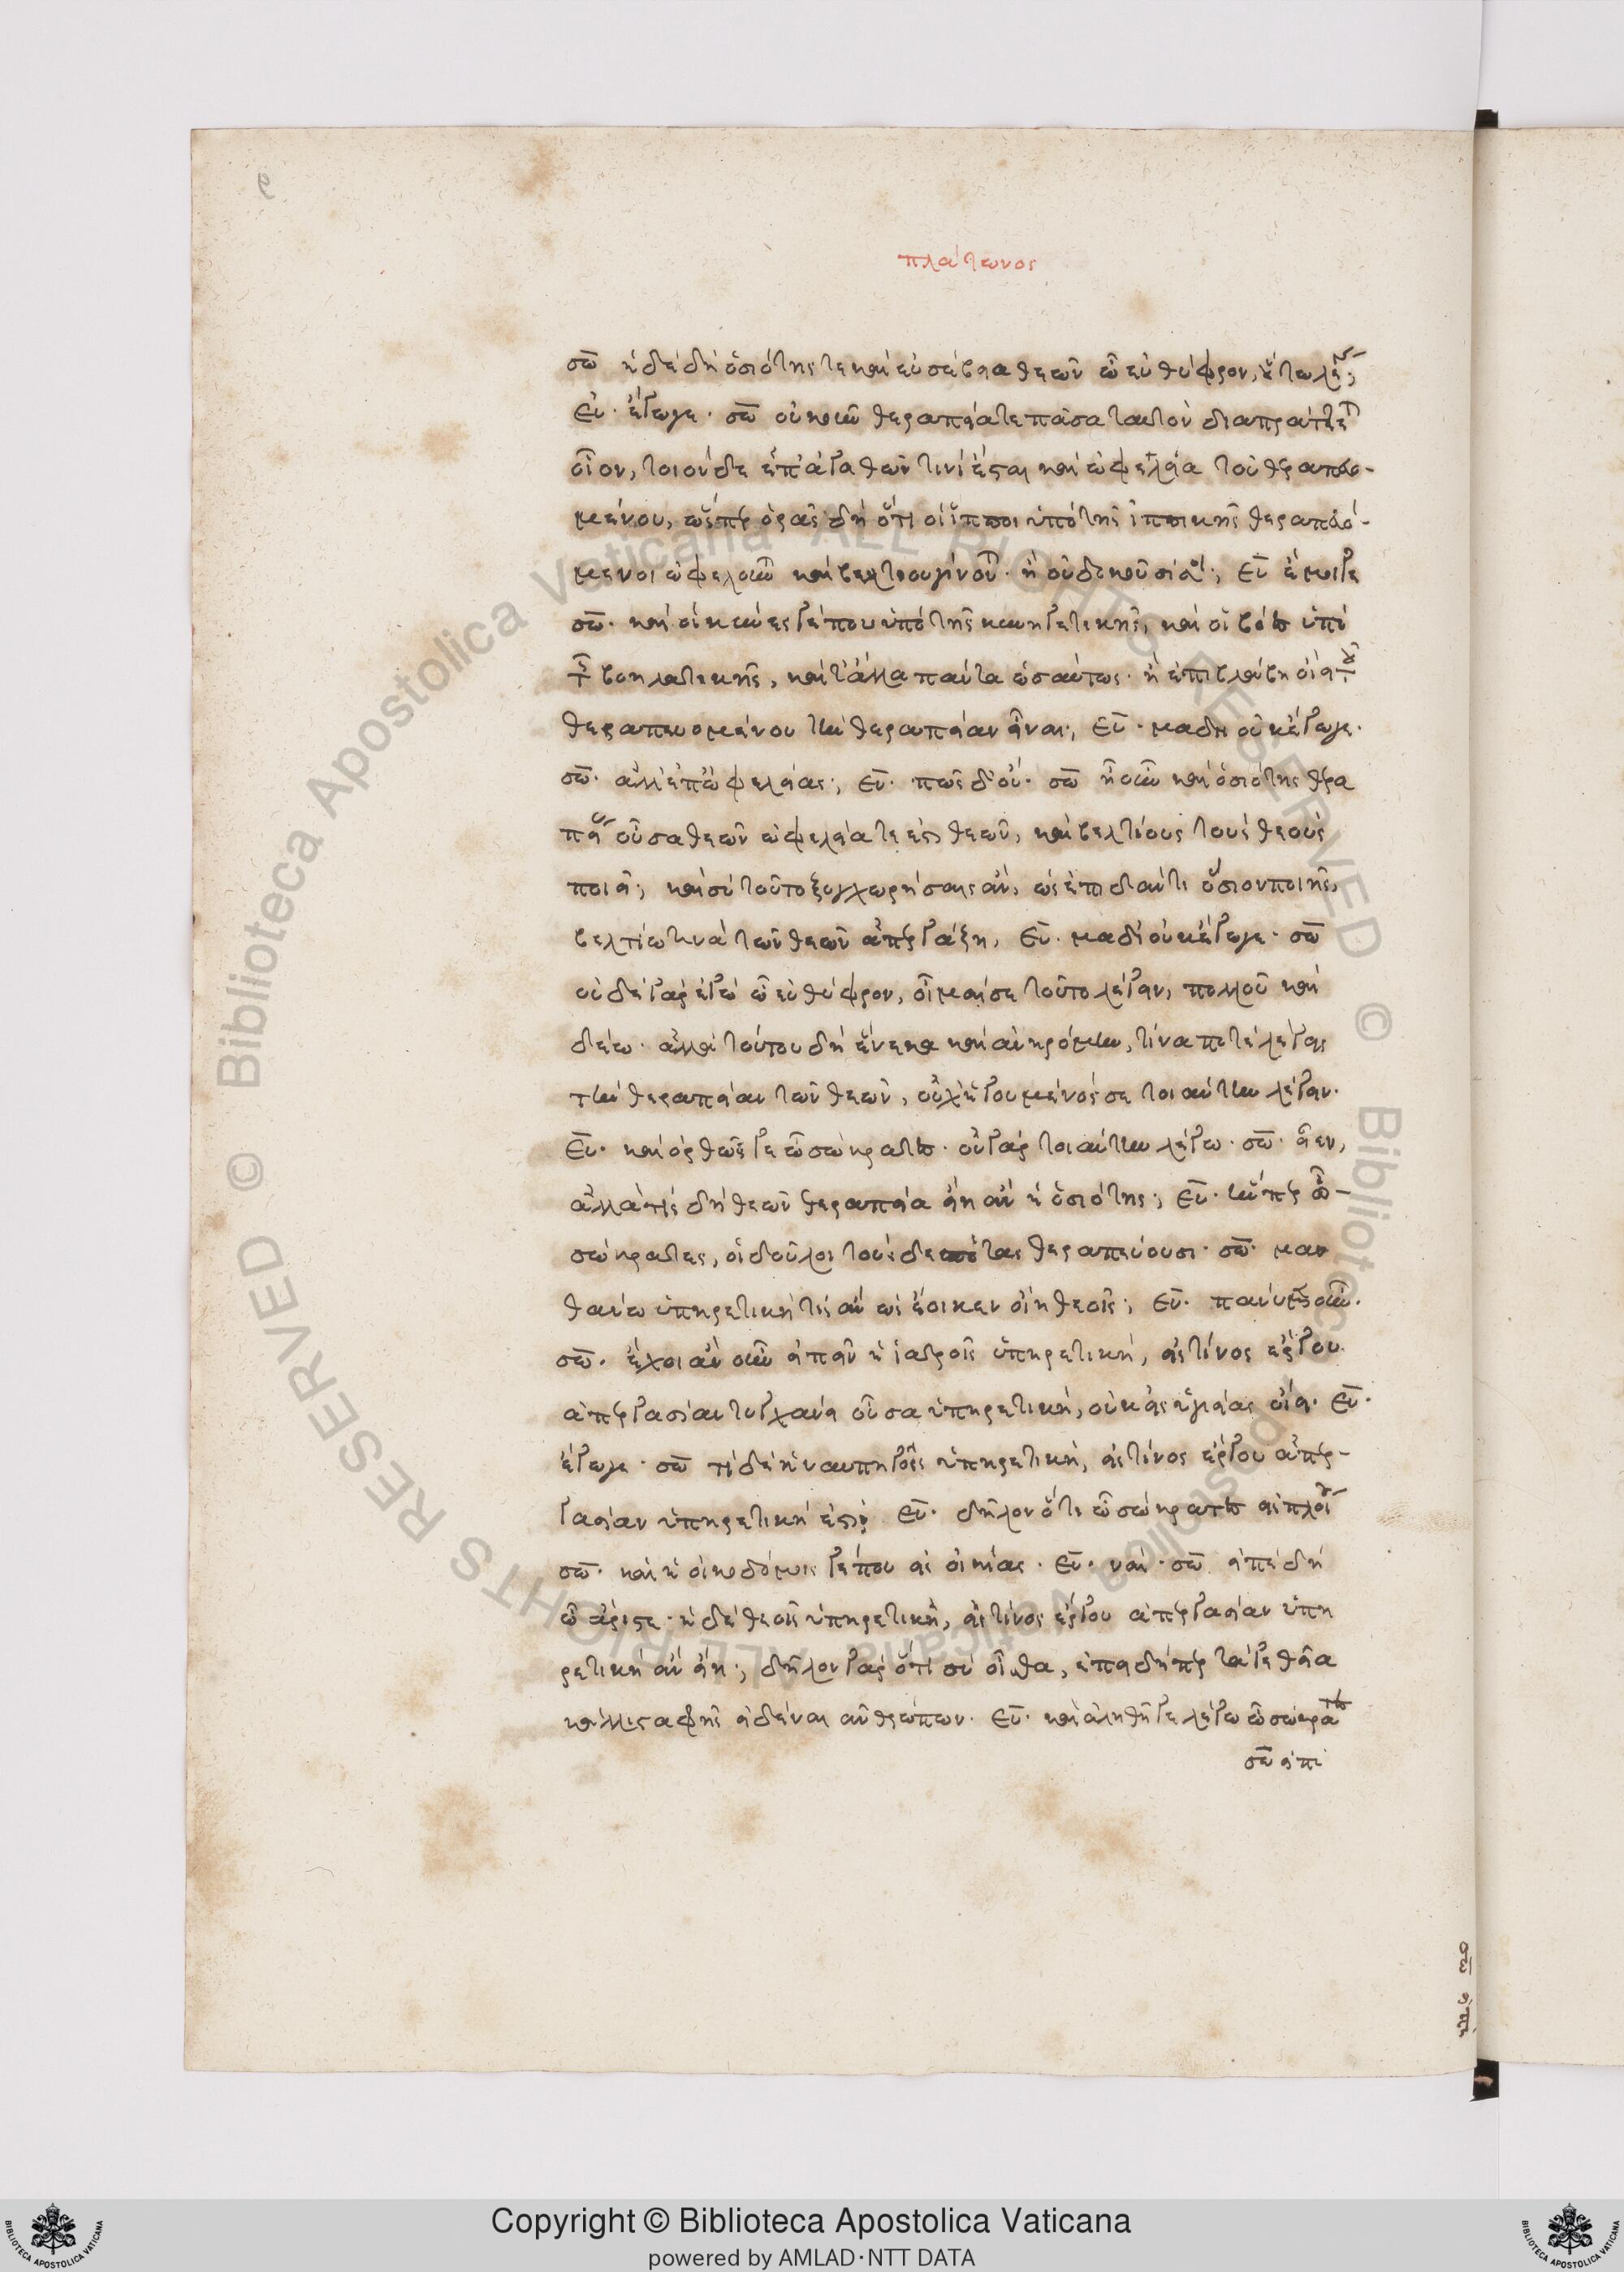 πλάτωνος
σω ἡ δὲ δὴ ὁσιότης τε καὶ εὐσέβεια θεῶν ὦ εὐθύφρον, οὕτω λέγεις;
ευ· ἔγωγε· σω οὐκοῦν θεραπεία τε πᾶσα ταυτὸν διαπράττεται
οἷον, τοιόνδε ἐπ' ἀγαθῶ τινί ἐστι καὶ ὠφελεία τοῦ θεραπευο-
μένου, ὥσπερ ὁρᾷς δὴ ὅτι οἱ ἵπποι ὑπὸ τῆς ἱππικῆς θεραπευό-
μενοι ὠφελοῦνται καὶ βελτίους γίνονται· ἢ οὐ δοκοῦσί σοι; ευ ἔμοιγε
σω· καὶ οἱ κύνες γέ που ὑπὸ τῆς κυνηγετικῆς, καὶ οἱ βόες ὑπὸ
τῆς βοηλατικῆς, καὶ τἆλλα πάντα ὡσαύτως· ἢ ἐπὶ βλάβῃ οἴει τοῦ
θεραπευομένου τὴν θεραπείαν εἶναι; ευ· μὰ δι' οὐκ ἔγωγε·
σω· ἀλλ' ἐπ' ὠφελείας; ευ· πῶς δ' οὔ· σω ἦ οὖν καὶ ὁσιότης θερα
πεία οὖσα θεῶν ὠφελεία τέ ἐστι θεῶν, καὶ βελτίους τοὺς θεοὺς
ποιεῖ; καὶ σὺ τοῦτο ξυγχωρήσαις ἄν, ὡς ἐπειδάν τι ὅσιον ποιῇς,
βελτίω τινὰ τῶν θεῶν ἀπεργάζῃ, ευ· μὰ δί' οὐκ ἔγωγε· σω
οὐδὲ γὰρ ἐγὼ ὦ εὐθύφρον, οἶμαί σε τοῦτο λέγειν, πολλοῦ καὶ
δέω· ἀλλὰ τούτου δὴ ἕνεκα καὶ ἀνηρόμην, τίνα ποτὲ λέγεις
τὴν θεραπείαν τῶν θεῶν, οὐχ ἡγούμενός σε τοιαύτην λέγειν·
ευ· καὶ ὀρθῶς γε ὦ σώκρατες· οὐ γὰρ τοιαύτην λέγω· σω· εἶεν,
ἀλλὰ τίς δὴ θεῶν θεραπεία εἴη ἂν ἡ ὁσιότης; ευ· ἥνπερ ὦ
σώκρατες, οἱ δοῦλοι τοὺς δεσπότας θεραπεύουσι· σω· μαν
θάνω ὑπηρετική τις ἂν ὡς ἔοικεν εἴη θεοῖς; ευ· πάνυ μὲν οὖν·
σω· ἔχοις ἂν οὖν εἰπεῖν ἡ ἰατροῖς ὑπηρετική, εἰς τίνος ἔργου
ἀπεργασίαν τυγχάνει οὖσα ὑπηρετική, οὐκ εἰς ὑγιείας οἴει· ευ·
ἔγωγε· σω τί δὲ ἡ ναυπηγοῖς ὑπηρετική, εἰς τίνος ἔργου ἀπερ-
γασίαν ὑπηρετική ἐστι; ευ· δῆλον ὅτι ὦ σώκρατες εἰς πλοίου
σω· καὶ ἡ οἰκοδόμοις γέ που εἰς οἰκίας· ευ· ναί· σω εἰπὲ δὴ
ὦ ἄριστε· ἡ δὲ θεοῖς ὑπηρετική, εἰς τίνος ἔργου ἀπεργασίαν ὑπη
ρετικὴ ἂν εἴη; δῆλον γὰρ ὅτι σὺ οἶσθα, ἐπειδήπερ τά γε θεῖα
κάλλιστα φῂς εἰδέναι ἀνθρώπων· ευ· καὶ ἀληθῆ γε λέγω ὦ σώκρατες
σω εἰπὲ